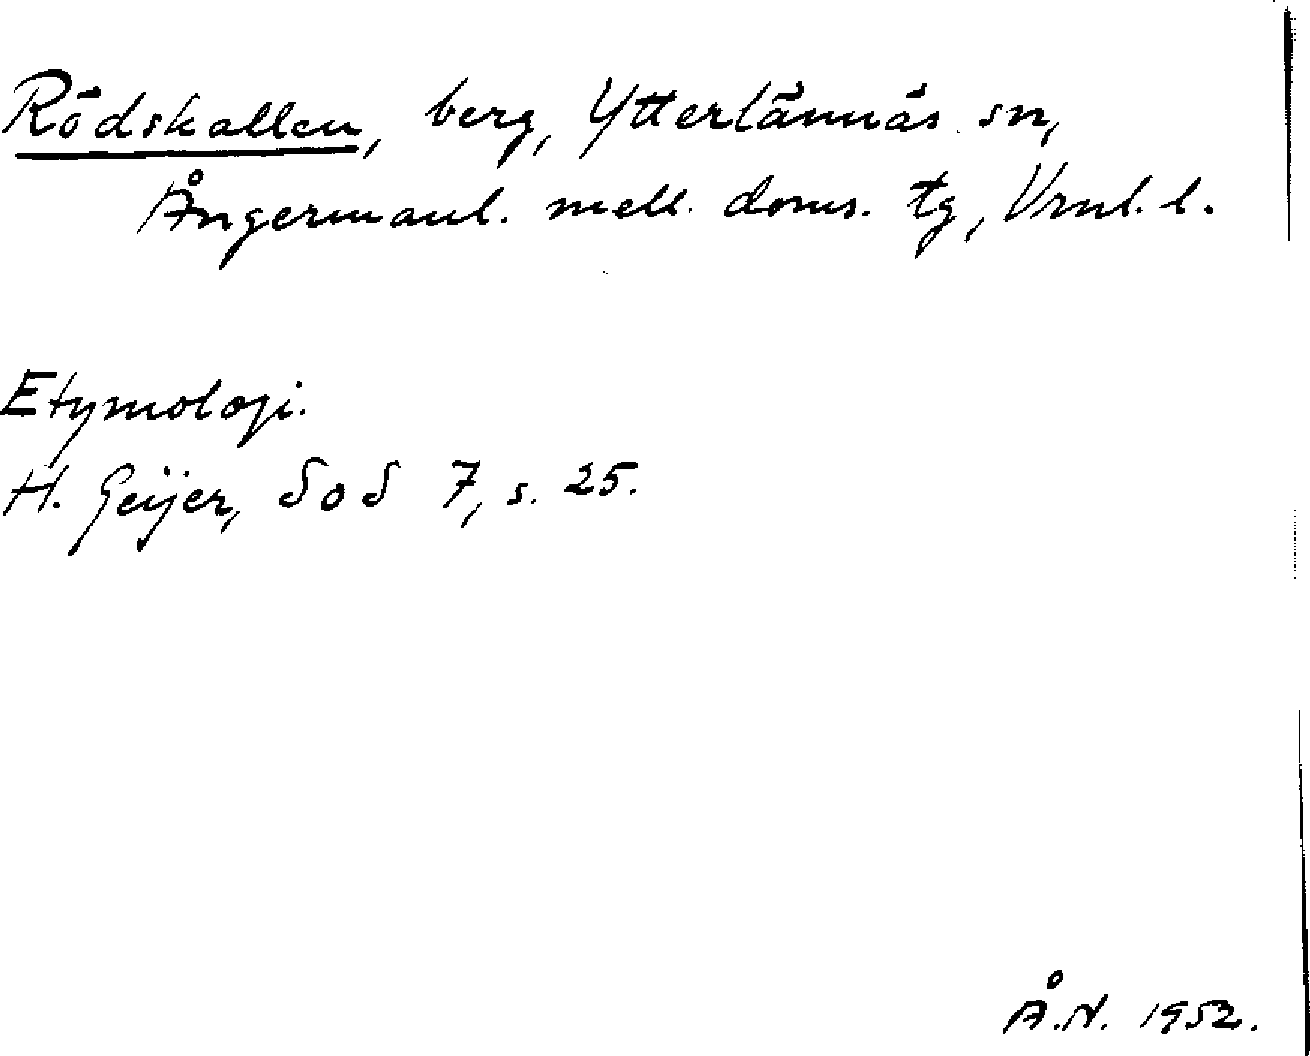 Rödskallen, berg, Ytterlännäs sn,
Ångermanl. mell. doms. tg, Vrnl. l.
Etymologi.
H. Geijer, SoS 7, s. 25.
Å.N. 1952.